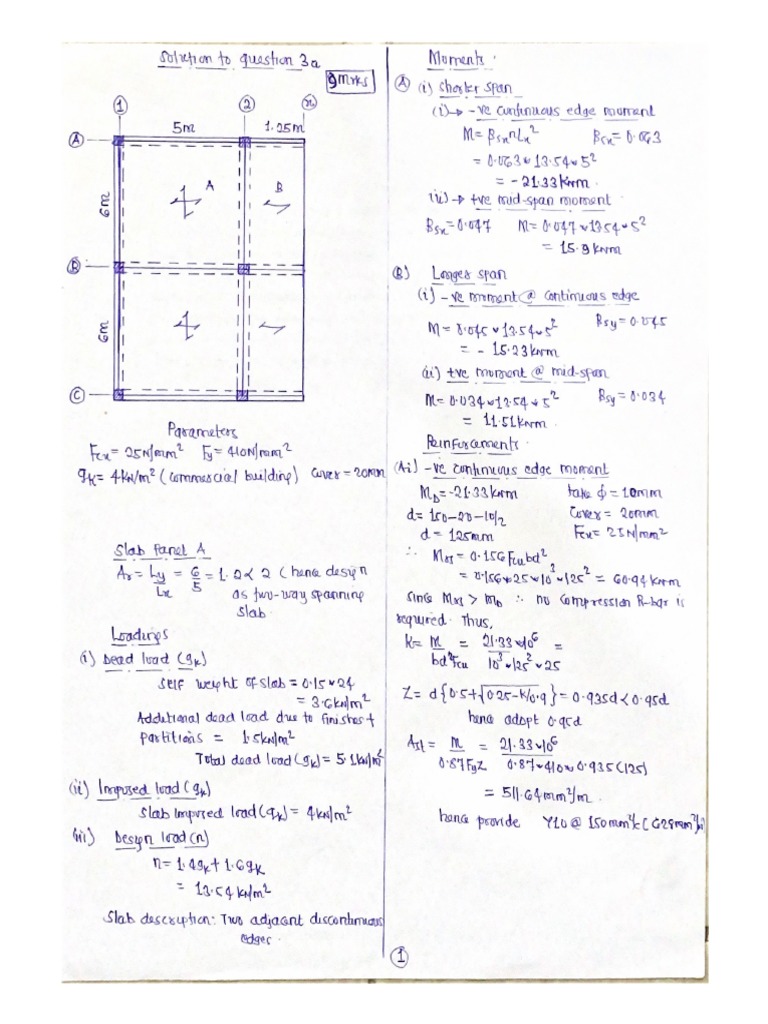 Solution to question 3a
9 mrks
1
2
5m
1.25m
A
A
B
6m
B
6m
C
Parameters
Fcu = 25N/mm² Fy = 410N/mm²
qk = 4kN/m² (commercial building) cover = 20mm
Slab Panel A
Ar = Ly/Lx = 6/5 = 1.2 < 2 (hence design
as two-way spanning
slab.
Loadings
(i) Dead load (gk)
self weight of slab = 0.15 * 24
= 3.6kN/m²
Additional dead load due to finishes +
partitions = 1.5kN/m²
Total dead load (gk) = 5.1kN/m²
(ii) Imposed load (qk)
Slab imposed load (qk) = 4kN/m²
(iii) Design load (n)
n = 1.4gk + 1.6qk
= 13.54 kN/m²
Slab description: Two adjacent discontinuous
edges.
Moments.
A (i) Shorter span
(i) → -ve continuous edge moment
M = βsx n Lx² βsx = 0.063
= 0.063 * 13.54 * 5²
= - 21.33 kNm.
(ii) → +ve mid-span moment
βsx = 0.047 M = 0.047 * 13.54 * 5²
= 15.9 kNm.
B) Longer span
(i) -ve moment @ continuous edge
M = 0.045 * 13.54 * 5² βsy = 0.045
= - 15.23kNm
(ii) +ve moment @ mid-span
M = 0.034 * 13.54 * 5² βsy = 0.034
= 11.51kNm.
Reinforcements.
(Ai) -ve continuous edge moment
MD = -21.33 kNm take ϕ = 10mm
d = 150-20-10/2 cover = 20mm
d = 125mm Fcu = 25N/mm²
∴ Mrs = 0.156 Fcu bd²
= 0.156 * 25 * 10³ * 125² = 60.94 kNm
since Mrs > MD ∴ no compression R-bar is
required. Thus,
K = M/bd²Fcu = 21.33 * 10⁶/10³ * 125² * 25 =
Z = d{0.5+√0.25-K/0.9} = 0.935d < 0.95d
hence adopt 0.95d
Ast = M/0.87FyZ = 21.33 * 10⁶/0.87 * 410 * 0.935(125)
= 511.64 mm²/m.
hence provide Y10 @ 150mm
1